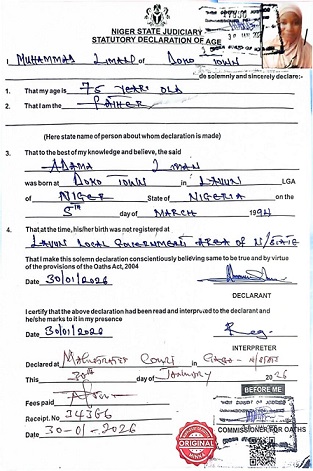 NIGER STATE JUDICIARY
STATUTORY DECLARATION OF AGE
I, MUHAMMAD of DOKO TOWN
do solemnly and sincerely declare:-
1. That my age is 75 YEARS OLD
2. That I am the FATHER
(Here state name of person about whom declaration is made)
3. That to the best of my knowledge and believe, the said
ADAMA IMAN
was born at DOKO TOWN in LAVUN LGA
of NIGER State of NIGERIA on the
5TH day of MARCH 1994
4. That at the time, his/her birth was not registered at
LAVUN LOCAL GOVERNMENT AREA OF N/STATE
That I make this solemn declaration conscientiously believing same to be true and by virtue
of the provisions of the Oaths Act, 2004
Date 30/01/2026
DECLARANT
I certify that the above declaration had been read and interpreted to the declarant and
he/she marks to it in my presence
Date 30/01/2026 Reg.
INTERPRETER
Declared at MAGISTRATE COURT in
This 30th day of JANUARY 2026
BEFORE ME
Fees paid
Receipt. No 34366
Date 30-01-2026
COMMISSIONER FOR OATHS
ORIGINAL